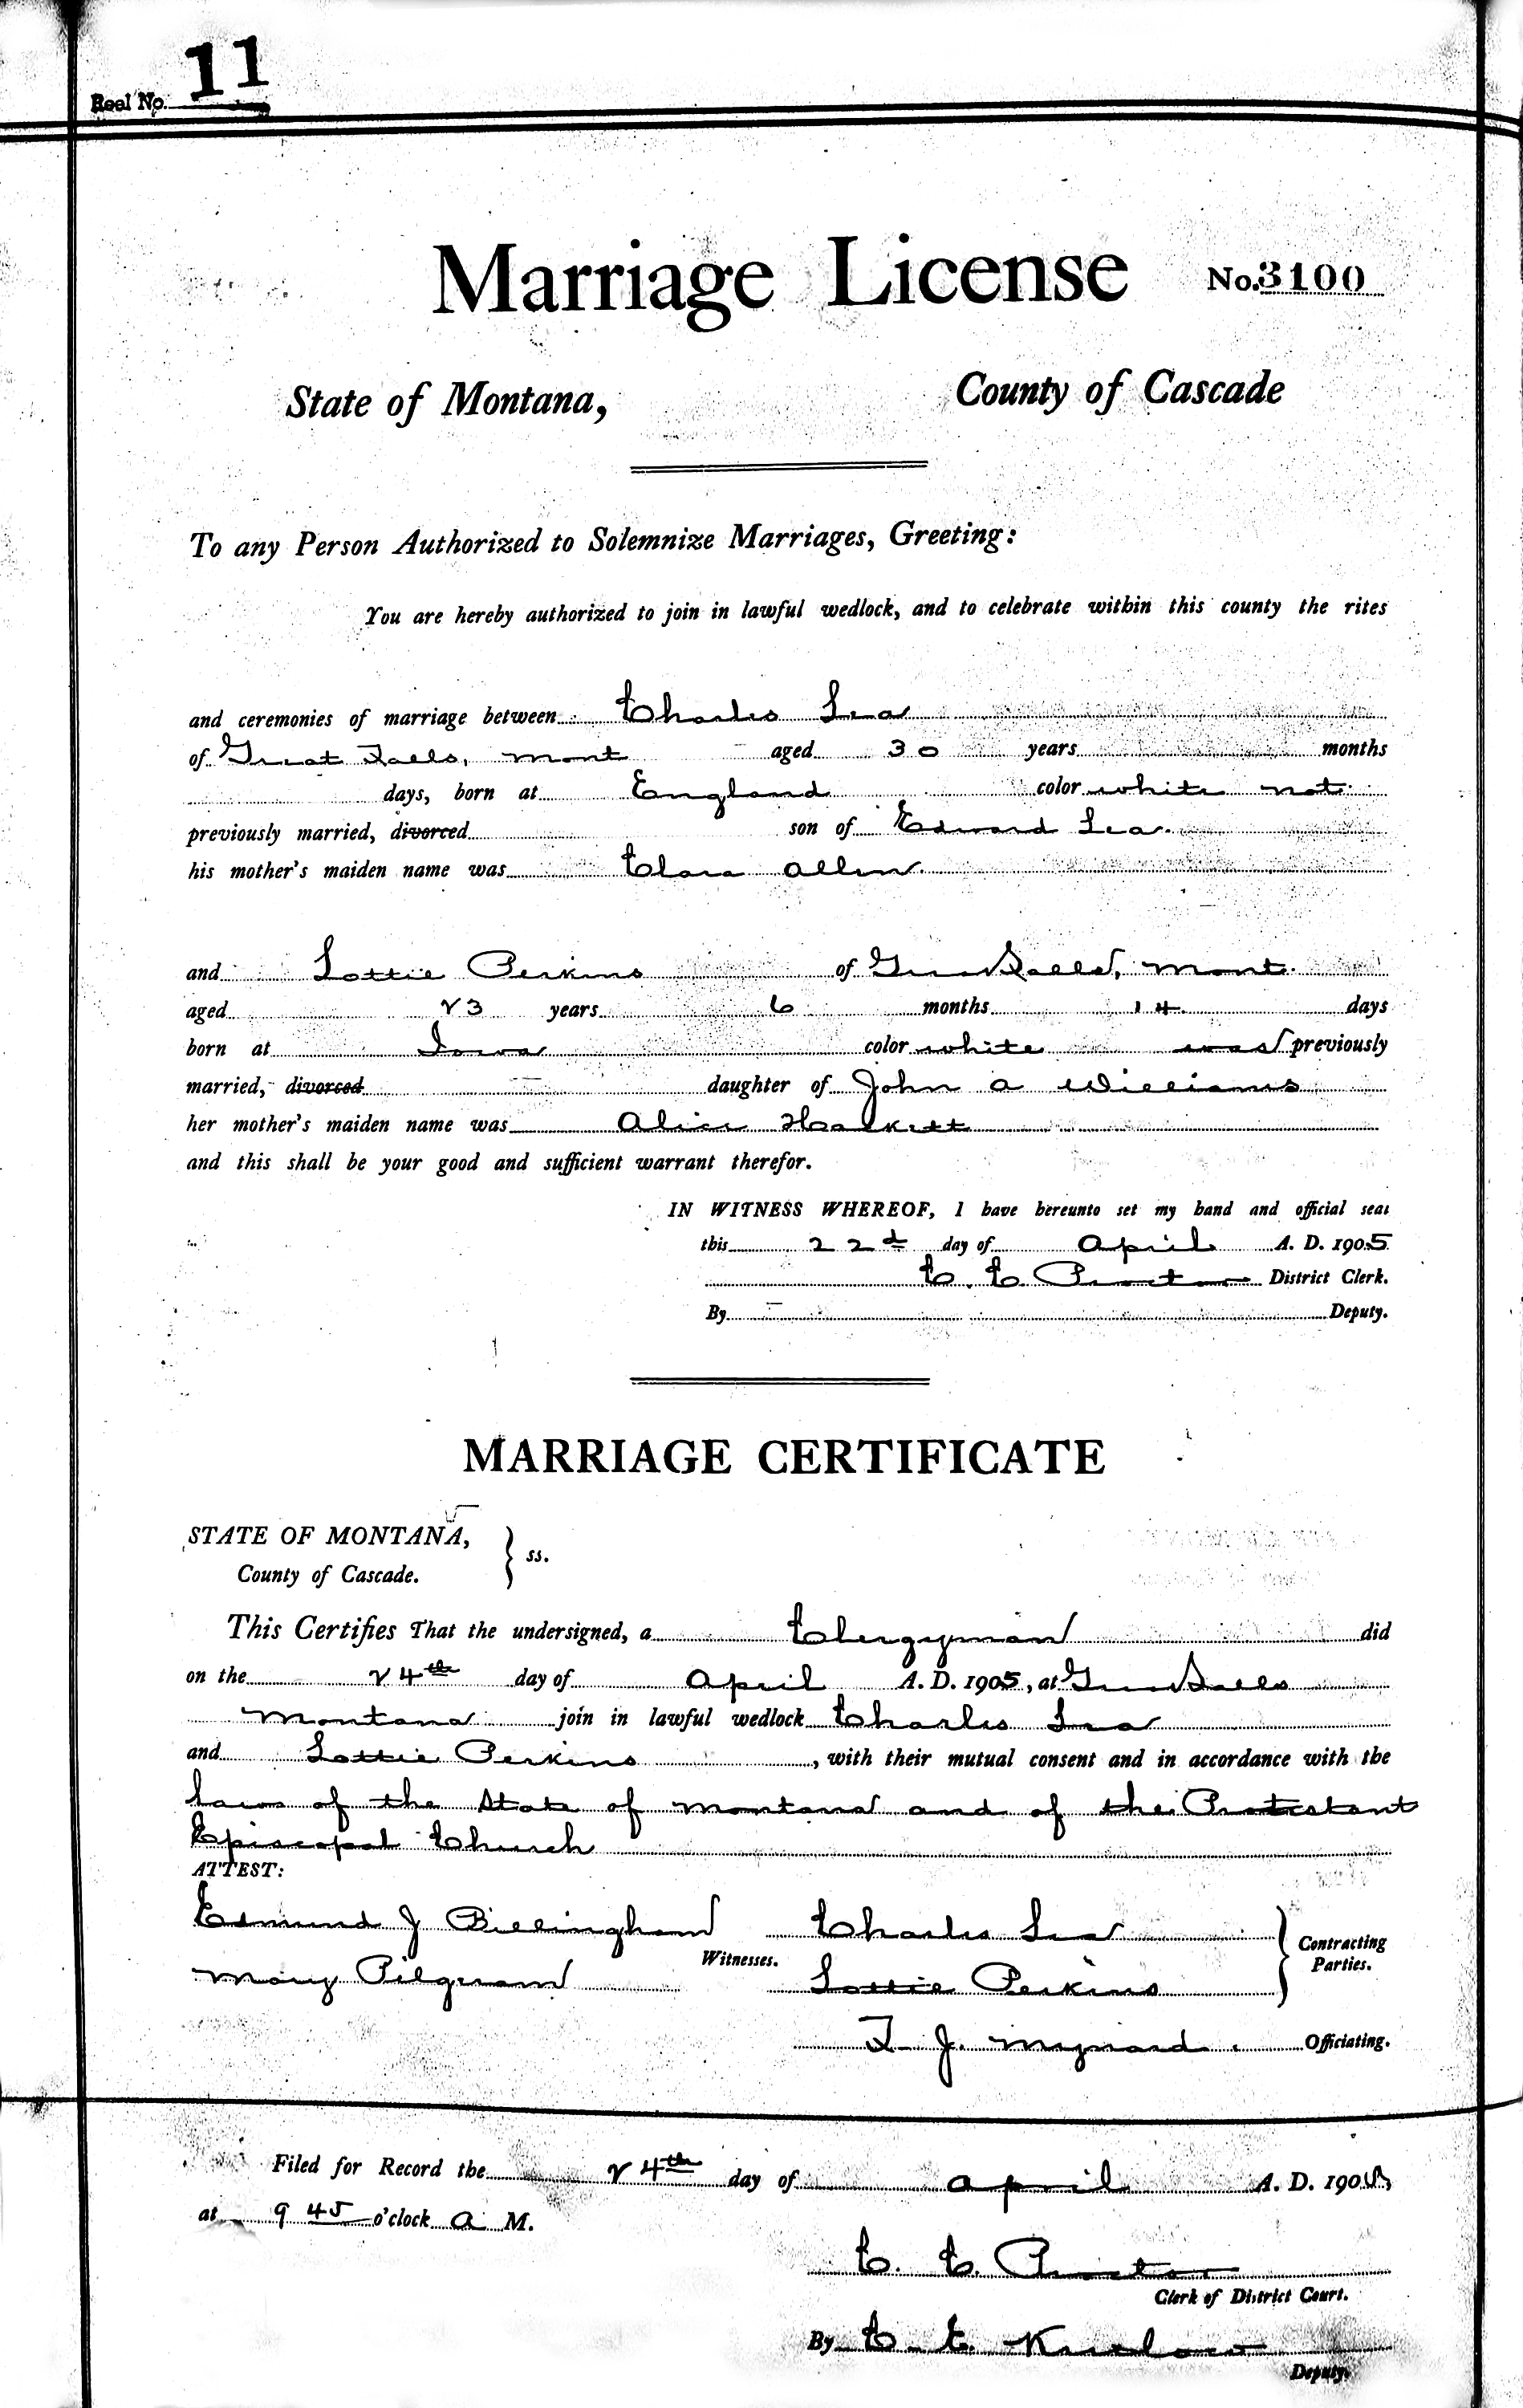 Reel No. 11
Marriage License No. 3100
State of Montana, County of Cascade
To any Person Authorized to Solemnize Marriages, Greeting:
You are hereby authorized to join in lawful wedlock, and to celebrate within this county the rites
and ceremonies of marriage between Charles Lea
of Great Falls, Mont aged 30 years months
days, born at England color white not
previously married, divorced son of Edward Lea.
his mother's maiden name was Clara Allen.
and Lottie Perkins of Great Falls, Mont.
aged 23 years 6 months 14 days
born at Iowa color white was previously
married, divorced daughter of John A Williams
her mother's maiden name was Alice Halkett
and this shall be your good and sufficient warrant therefor.
IN WITNESS WHEREOF, I have hereunto set my hand and official seal
this 22d day of April A. D. 1905
C. C. Proctor District Clerk.
By Deputy.
MARRIAGE CERTIFICATE
STATE OF MONTANA,
County of Cascade. } ss.
This Certifies That the undersigned, a Clergyman did
on the 24th day of April A. D. 1905, at Great Falls
Montana join in lawful wedlock Charles Lea
and Lottie Perkins , with their mutual consent and in accordance with the
laws of the State of Montana and of the Protestant
Episcopal Church
ATTEST:
Edmund J Billingham Charles Lea
Witnesses. Contracting Parties.
Mary Pilgeram Lottie Perkins
J. Officiating.
Filed for Record the 24th day of April A. D. 1905,
at 9 45 o'clock A M.
C. C. Proctor
Clerk of District Court.
By C. C.
Deputy.